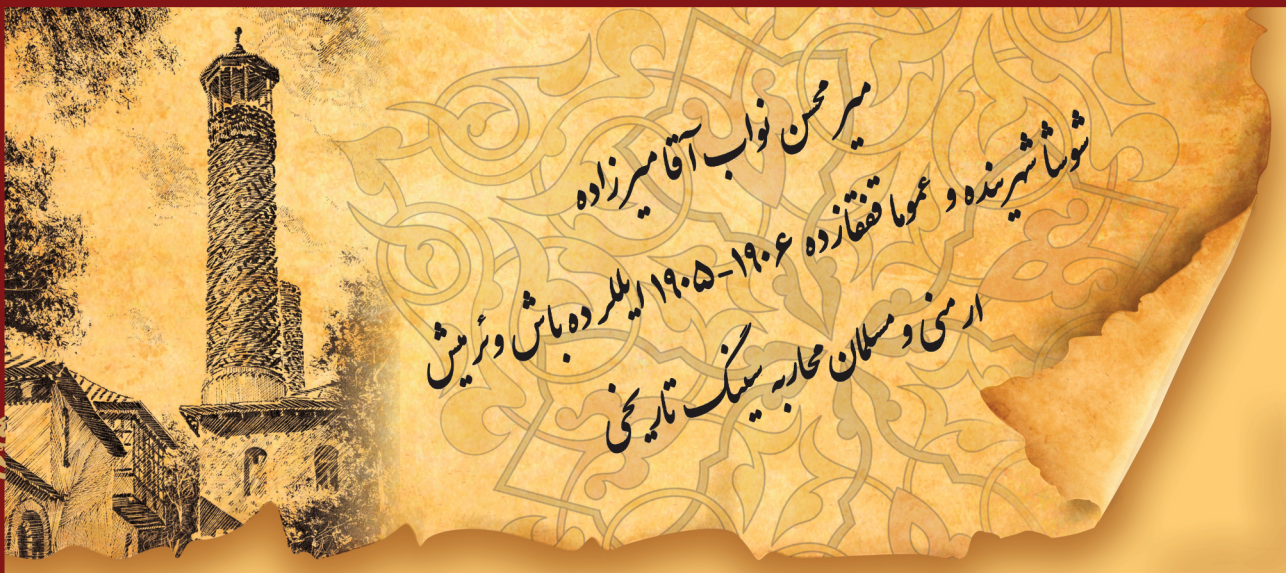 میر محسن نواب آقا میرزاده
شوشا شهرینده و عموما قفقازده ۱۹۰۶-۱۹۰۵ ایللرده باش وئرمیش
ارمنی و مسلمان محاربه سینگ تاریخی